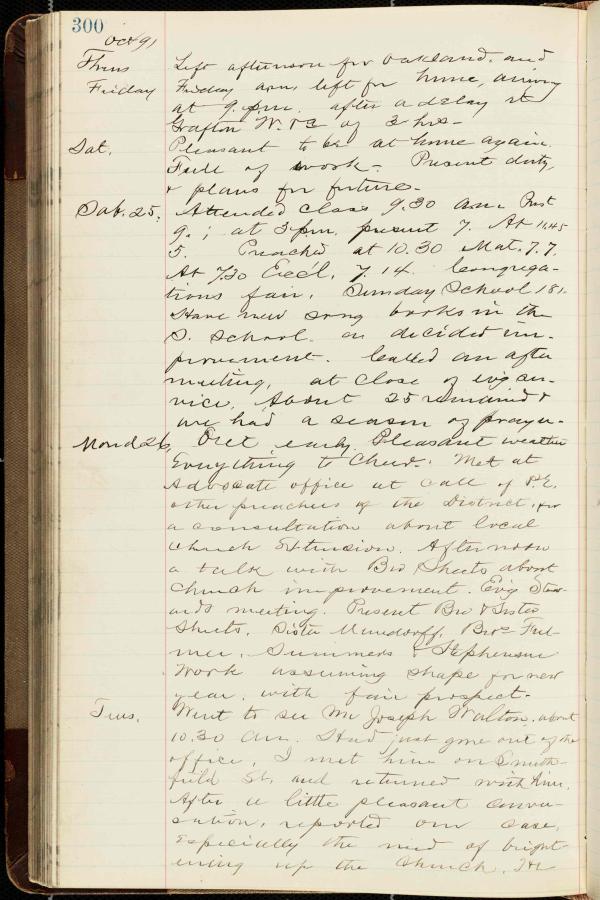 300
Oct 91
Thurs Left afternoon for Oakland. and
Friday Friday a.m. left for home, arriving
at 9. p.m. after a delay at
Grafton W. Va of 3 hrs-
Sat. Pleasant to be at home again.
Full of work- Present duty,
& plans for future-
Sab. 25. Attended class 9.30 a.m. Prst
9. ; at 3 p.m. present 7. At 11.45
5. Preached at 10.30 Mat. 7.7.
At 7.30 Eccl. 7.14. Congrega-
tions fair. Sunday School 181.
Have new song books in the
S. School. a decided im-
provement. Called an after
meeting, at close of evg ser-
vice. About 25 remained &
we had a season of prayer-
Mond 26, Oct early. Pleasant weather
Everything to cheer. Met at
Advocate office at call of P.E.
other preachers of the District, for
a consultation about local
church Extension. Afternoon
a talk with Bro Sheets about
church improvement. Evg Stew-
ards meeting. Present Bro & Sister
Sheets, Sister Mundorff, Bros Ful-
mer, Summers & Stephenson
Work assuming shape for new
year, with fair prospect-
Tues. Went to see Mr Joseph Walton, about
10.30 a.m. Had just gone out of the
office, I met him on Smith-
field St. and returned with him.
After a little pleasant conver-
sation, reported our case,
Especially the need of bright-
ening up the church. He